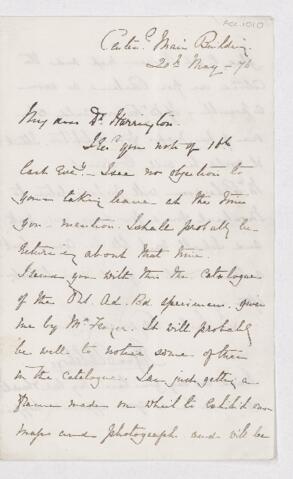 Acc.1010
Main Building
20th May – 76
My dear Dr Harrington.
I recd your note of 16th
last Eveg. – I see no objection to
your taking leave at the time
you mention. I shall probably be
returning about that time.
I send you with this the catalogue
of the specimens given
me by Mr. It will probably
be well to notice some of them
in the catalogue. I am just getting a
frame made on which to exhibit our
maps and photographs and will be